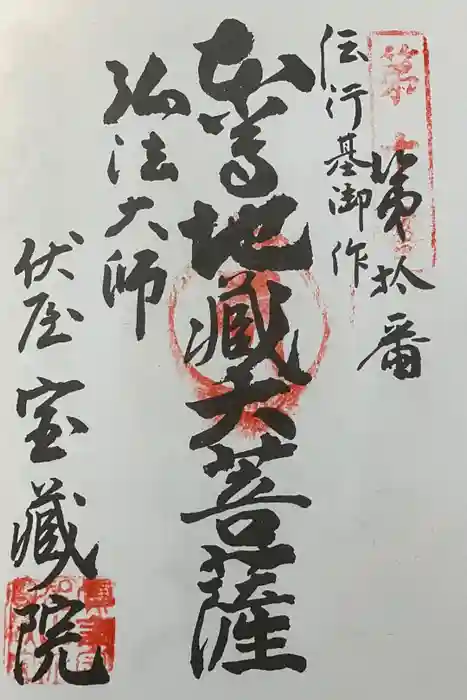 第拾番
伝行基御作
本尊地蔵大菩薩
弘法大師
伏屋宝蔵院